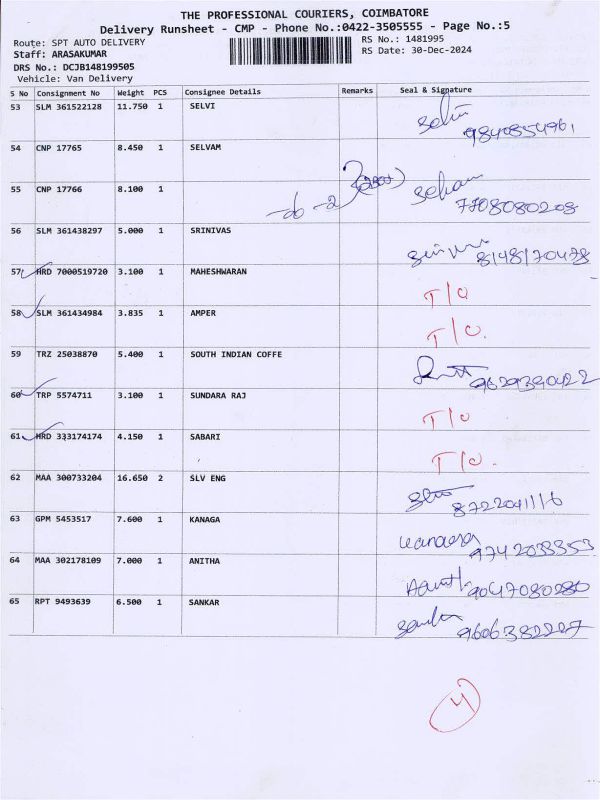 THE PROFESSIONAL COURIERS, COIMBATORE
Delivery Runsheet - CMP - Phone No.:0422-3505555 - Page No.:5
Route: SPT AUTO DELIVERY
Staff: ARASAKUMAR
DRS No.: DCJB148199505
Vehicle: Van Delivery
RS No.: 1481995
RS Date: 30-Dec-2024
S No Consignment No Weight PCS Consignee Details Remarks Seal & Signature
53 SLM 361522128 11.750 1 SELVI
9840854961
54 CNP 17765 8.450 1 SELVAM
55 CNP 17766 8.100 1
7708080208
56 SLM 361438297 5.000 1 SRINIVAS
8148170478
57 HRD 7000519720 3.100 1 MAHESHWARAN T/O
58 SLM 361434984 3.835 1 AMPER T/O.
59 TRZ 25038870 5.400 1 SOUTH INDIAN COFFE
9629390422
60 TRP 5574711 3.100 1 SUNDARA RAJ T/O
61 HRD 333174174 4.150 1 SABARI T/O.
62 MAA 300733204 16.650 2 SLV ENG
8722041116
63 GPM 5453517 7.600 1 KANAGA
9742033353
64 MAA 302178109 7.000 1 ANITHA
9047080280
65 RPT 9493639 6.500 1 SANKAR
9606382227
4